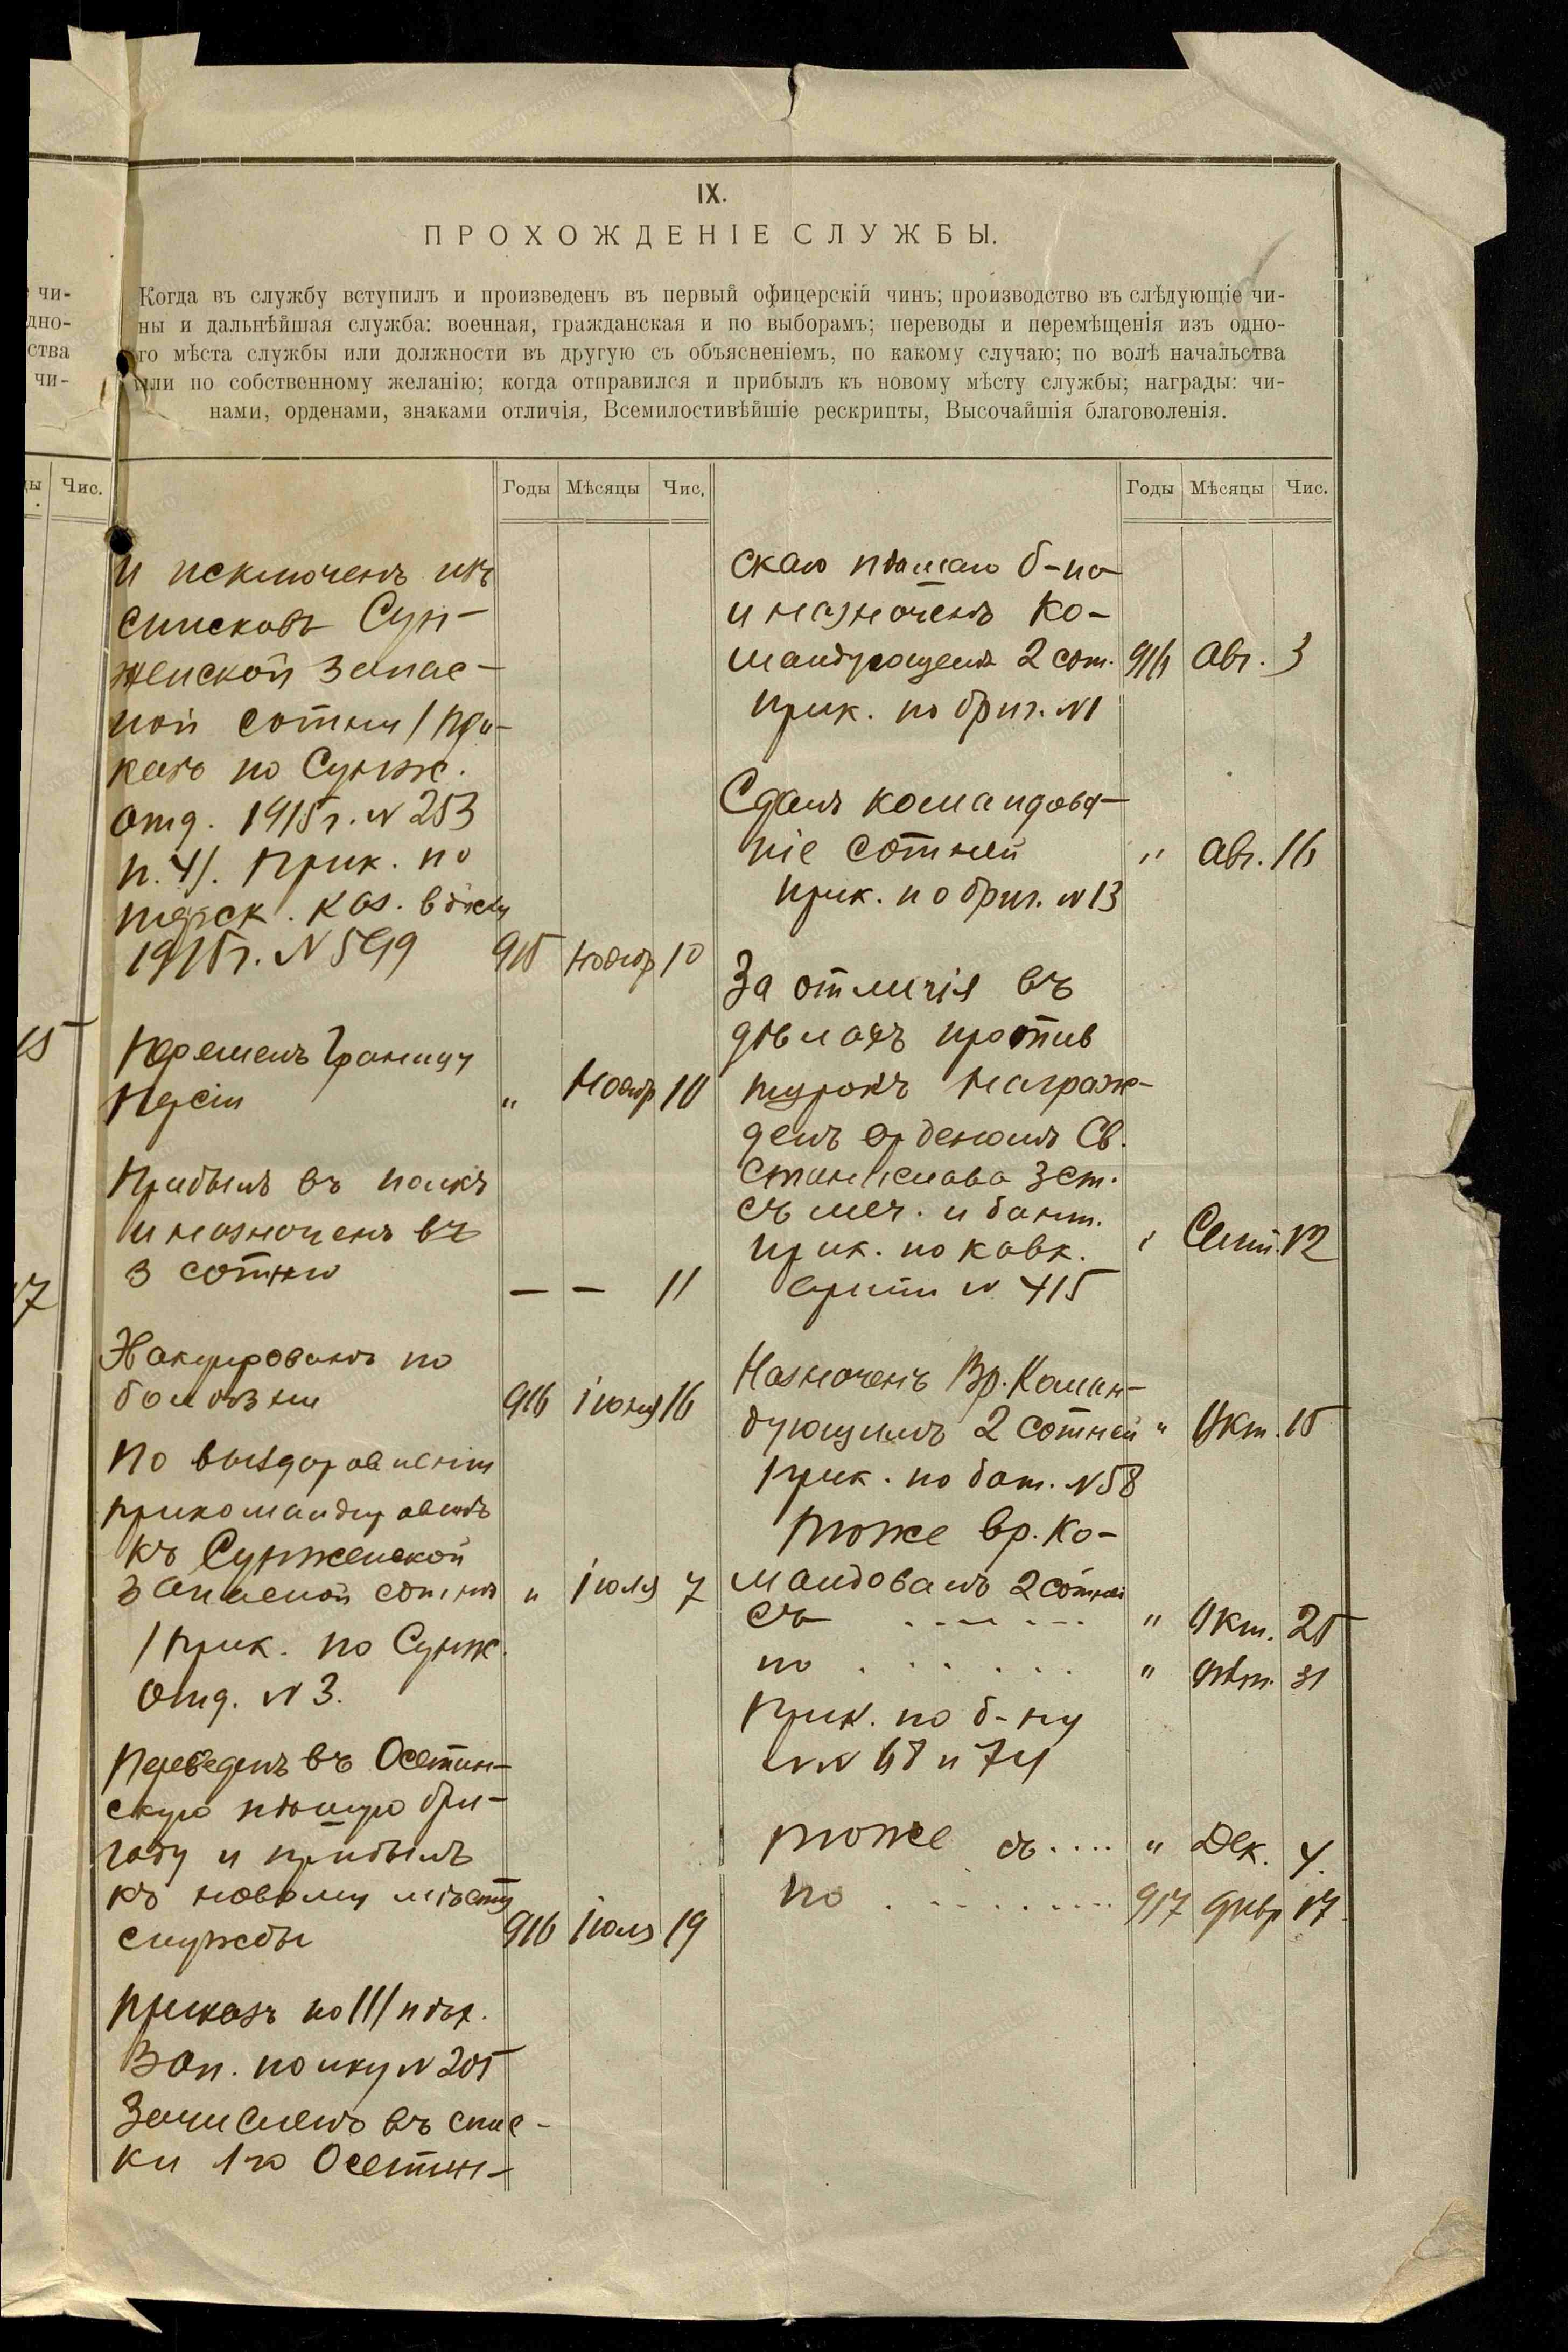 IX.
ПРОХОЖДЕНІЕ СЛУЖБЫ.
Когда въ службу вступилъ и произведенъ въ первый офицерскій чинъ; производство въ слѣдующіе чи-
ны и дальнѣйшая служба: военная, гражданская и по выборамъ; переводы и перемѣщенія изъ одно-
го мѣста службы или должности въ другую съ объясненіемъ, по какому случаю; по волѣ начальства
или по собственному желанію; когда отправился и прибылъ къ новому мѣсту службы; награды: чи-
нами, орденами, знаками отличія, Всемилостивѣйшіе рескрипты, Высочайшія благоволенія.
чи-
дно-
ства
чи-
ды Чис.
15
17
Годы Мѣсяцы Чис.
и исключенъ изъ
списковъ Сун-
женской запас-
ной сотни /при-
казъ по Сунж.
отд. 1915 г. № 253
п. 4/. Прик. по
терск. каз. войску
1915 г. № 599 915 Ноябр 10
Перешелъ границу
Персіи " Ноябр 10
Прибылъ въ полкъ
и назначенъ въ
3 сотню — — 11
Эвакуированъ по
болѣзни 916 Іюня 16
По выздоровленіи
прикомандированъ
къ Сунженской
запасной сотнѣ " Іюля 7
/Прик. по Сунж.
отд. № 3.
Переведенъ въ Осетин-
скую пѣшую бри-
гаду и прибылъ
къ новому мѣсту
службы 916 Іюля 19
Приказъ по III/ пѣх.
Зап. полку № 205
Зачисленъ въ спис-
ки 1го Осетин-
Годы Мѣсяцы Чис.
скаго пѣшаго б-на
и назначенъ ко-
мандующемъ 2 сот. 916 Авг. 3
Прик. по бриг. № 1
Сдалъ командова-
ніе сотней " Авг. 16
Прик. по бриг. № 13
За отличія въ
дѣлахъ против
турокъ награж-
денъ орденомъ Св.
Станислава 3 ст.
съ меч. и бант.
Прик. по кавк. " Сент. 12
арміи № 415
Назначенъ Вр. Коман-
дующимъ 2 сотней " Окт. 15
Прик. по бат. № 58
Тоже вр. ко-
мандовалъ 2 сотней
съ ....... " Окт. 25
по ....... " Окт. 31
Прик. по б-ну
№№ 68 и 74
Тоже съ .... " Дек. 4.
по ........ 917 Янвр 17.